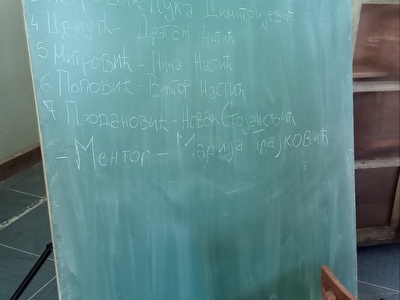 Лука Димитријевић
4 Драган Антић
5 Митровић - Нина Настић
6 Поповић - Виктор Настић
7 Продановић - Новак Стојановић
- Ментор - Марија Трајковић